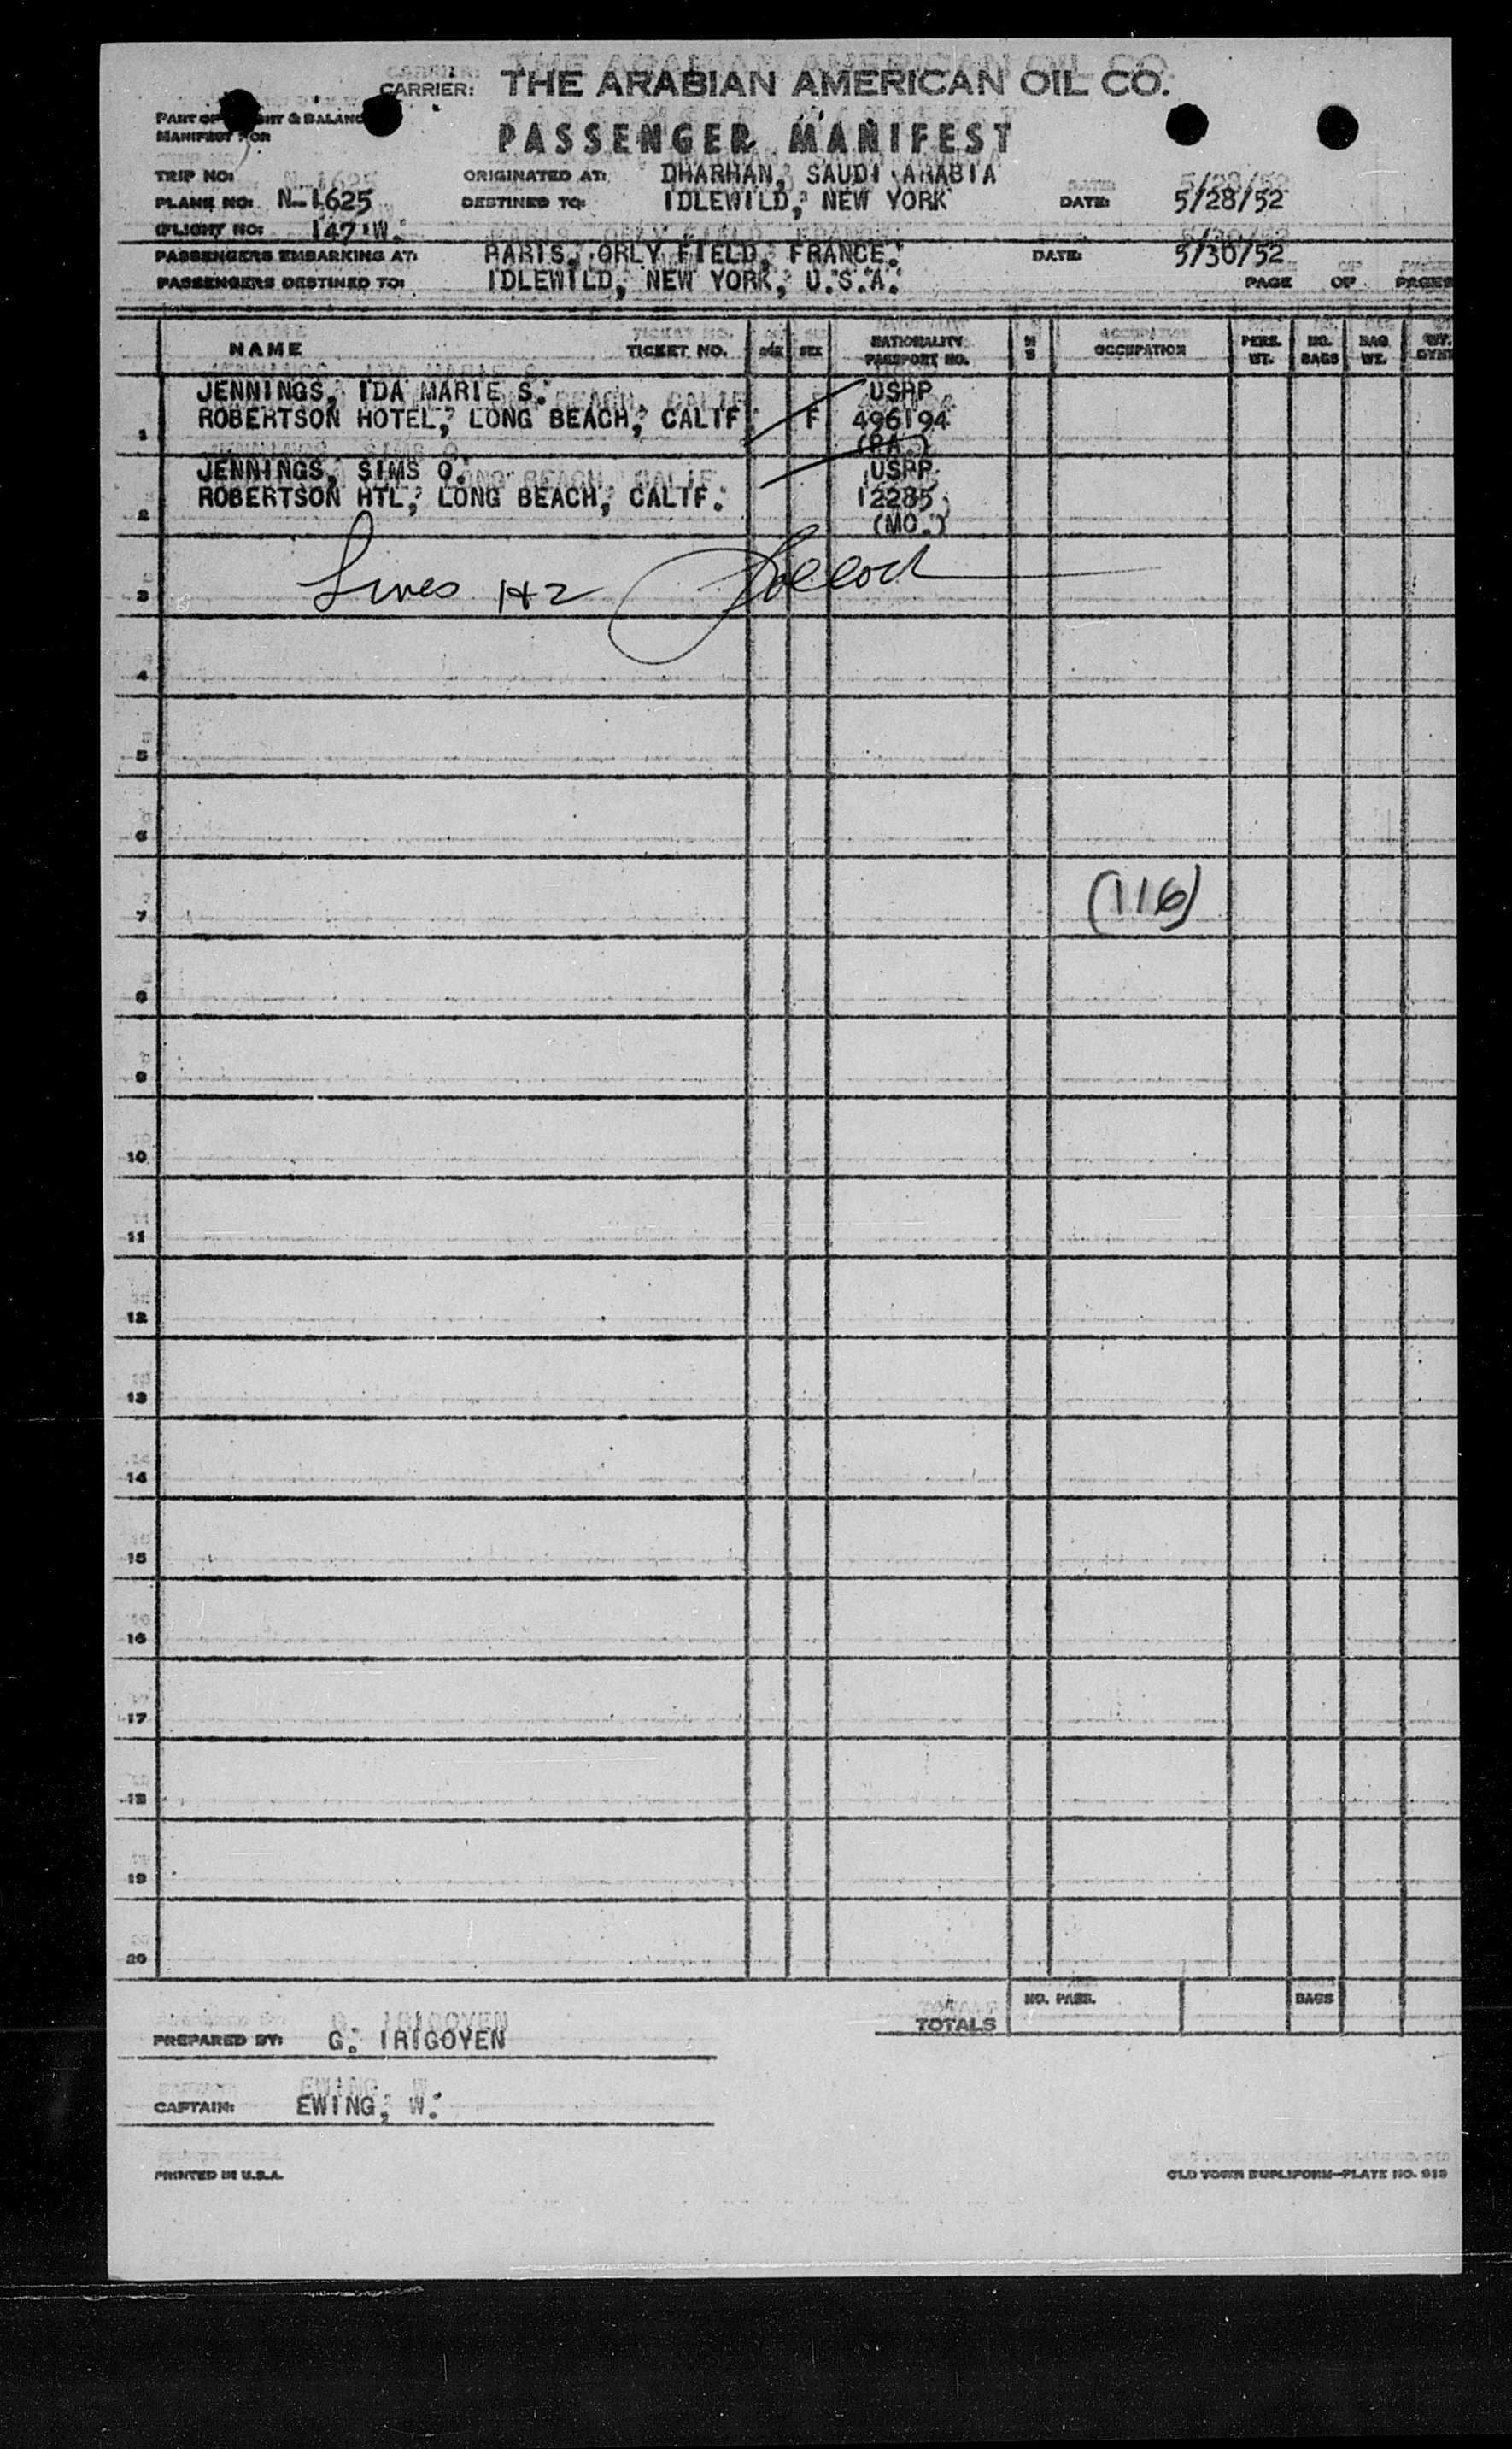 CARRIER: THE ARABIAN AMERICAN OIL CO.
PART OF & BALANCE
MANIFEST FOR
PASSENGER MANIFEST
TRIP NO: ORIGINATED AT: DHARHAN, SAUDI ARABIA
PLANE NO: N-1625 DESTINED TO: IDLEWILD, NEW YORK DATE: 5/28/52
FLIGHT NO: 147 W.
PASSENGERS EMBARKING AT: PARIS, ORLY FIELD, FRANCE. DATE: 5/30/52
PASSENGERS DESTINED TO: IDLEWILD, NEW YORK, U.S.A. PAGE OF PAGES
NAME TICKET NO. AGE SEX NATIONALITY PASSPORT NO. M S OCCUPATION PERS. WT. NO. BAGS BAG. WT.
JENNINGS, IDA MARIE S. USPP
ROBERTSON HOTEL, LONG BEACH, CALIF. F 496194
1 (PA.)
JENNINGS, SIMS O. USPP
ROBERTSON HTL, LONG BEACH, CALIF. 12285
2 (MO.)
3 Lines 1+2
4
5
6
7 (116)
8
9
10
11
12
13
14
15
16
17
18
19
20
TOTALS NO. PASS. BAGS
PREPARED BY: G. IRIGOYEN
CAPTAIN: EWING, W.
PRINTED IN U.S.A. OLD TOWN DUPLIFORM-PLATE NO.